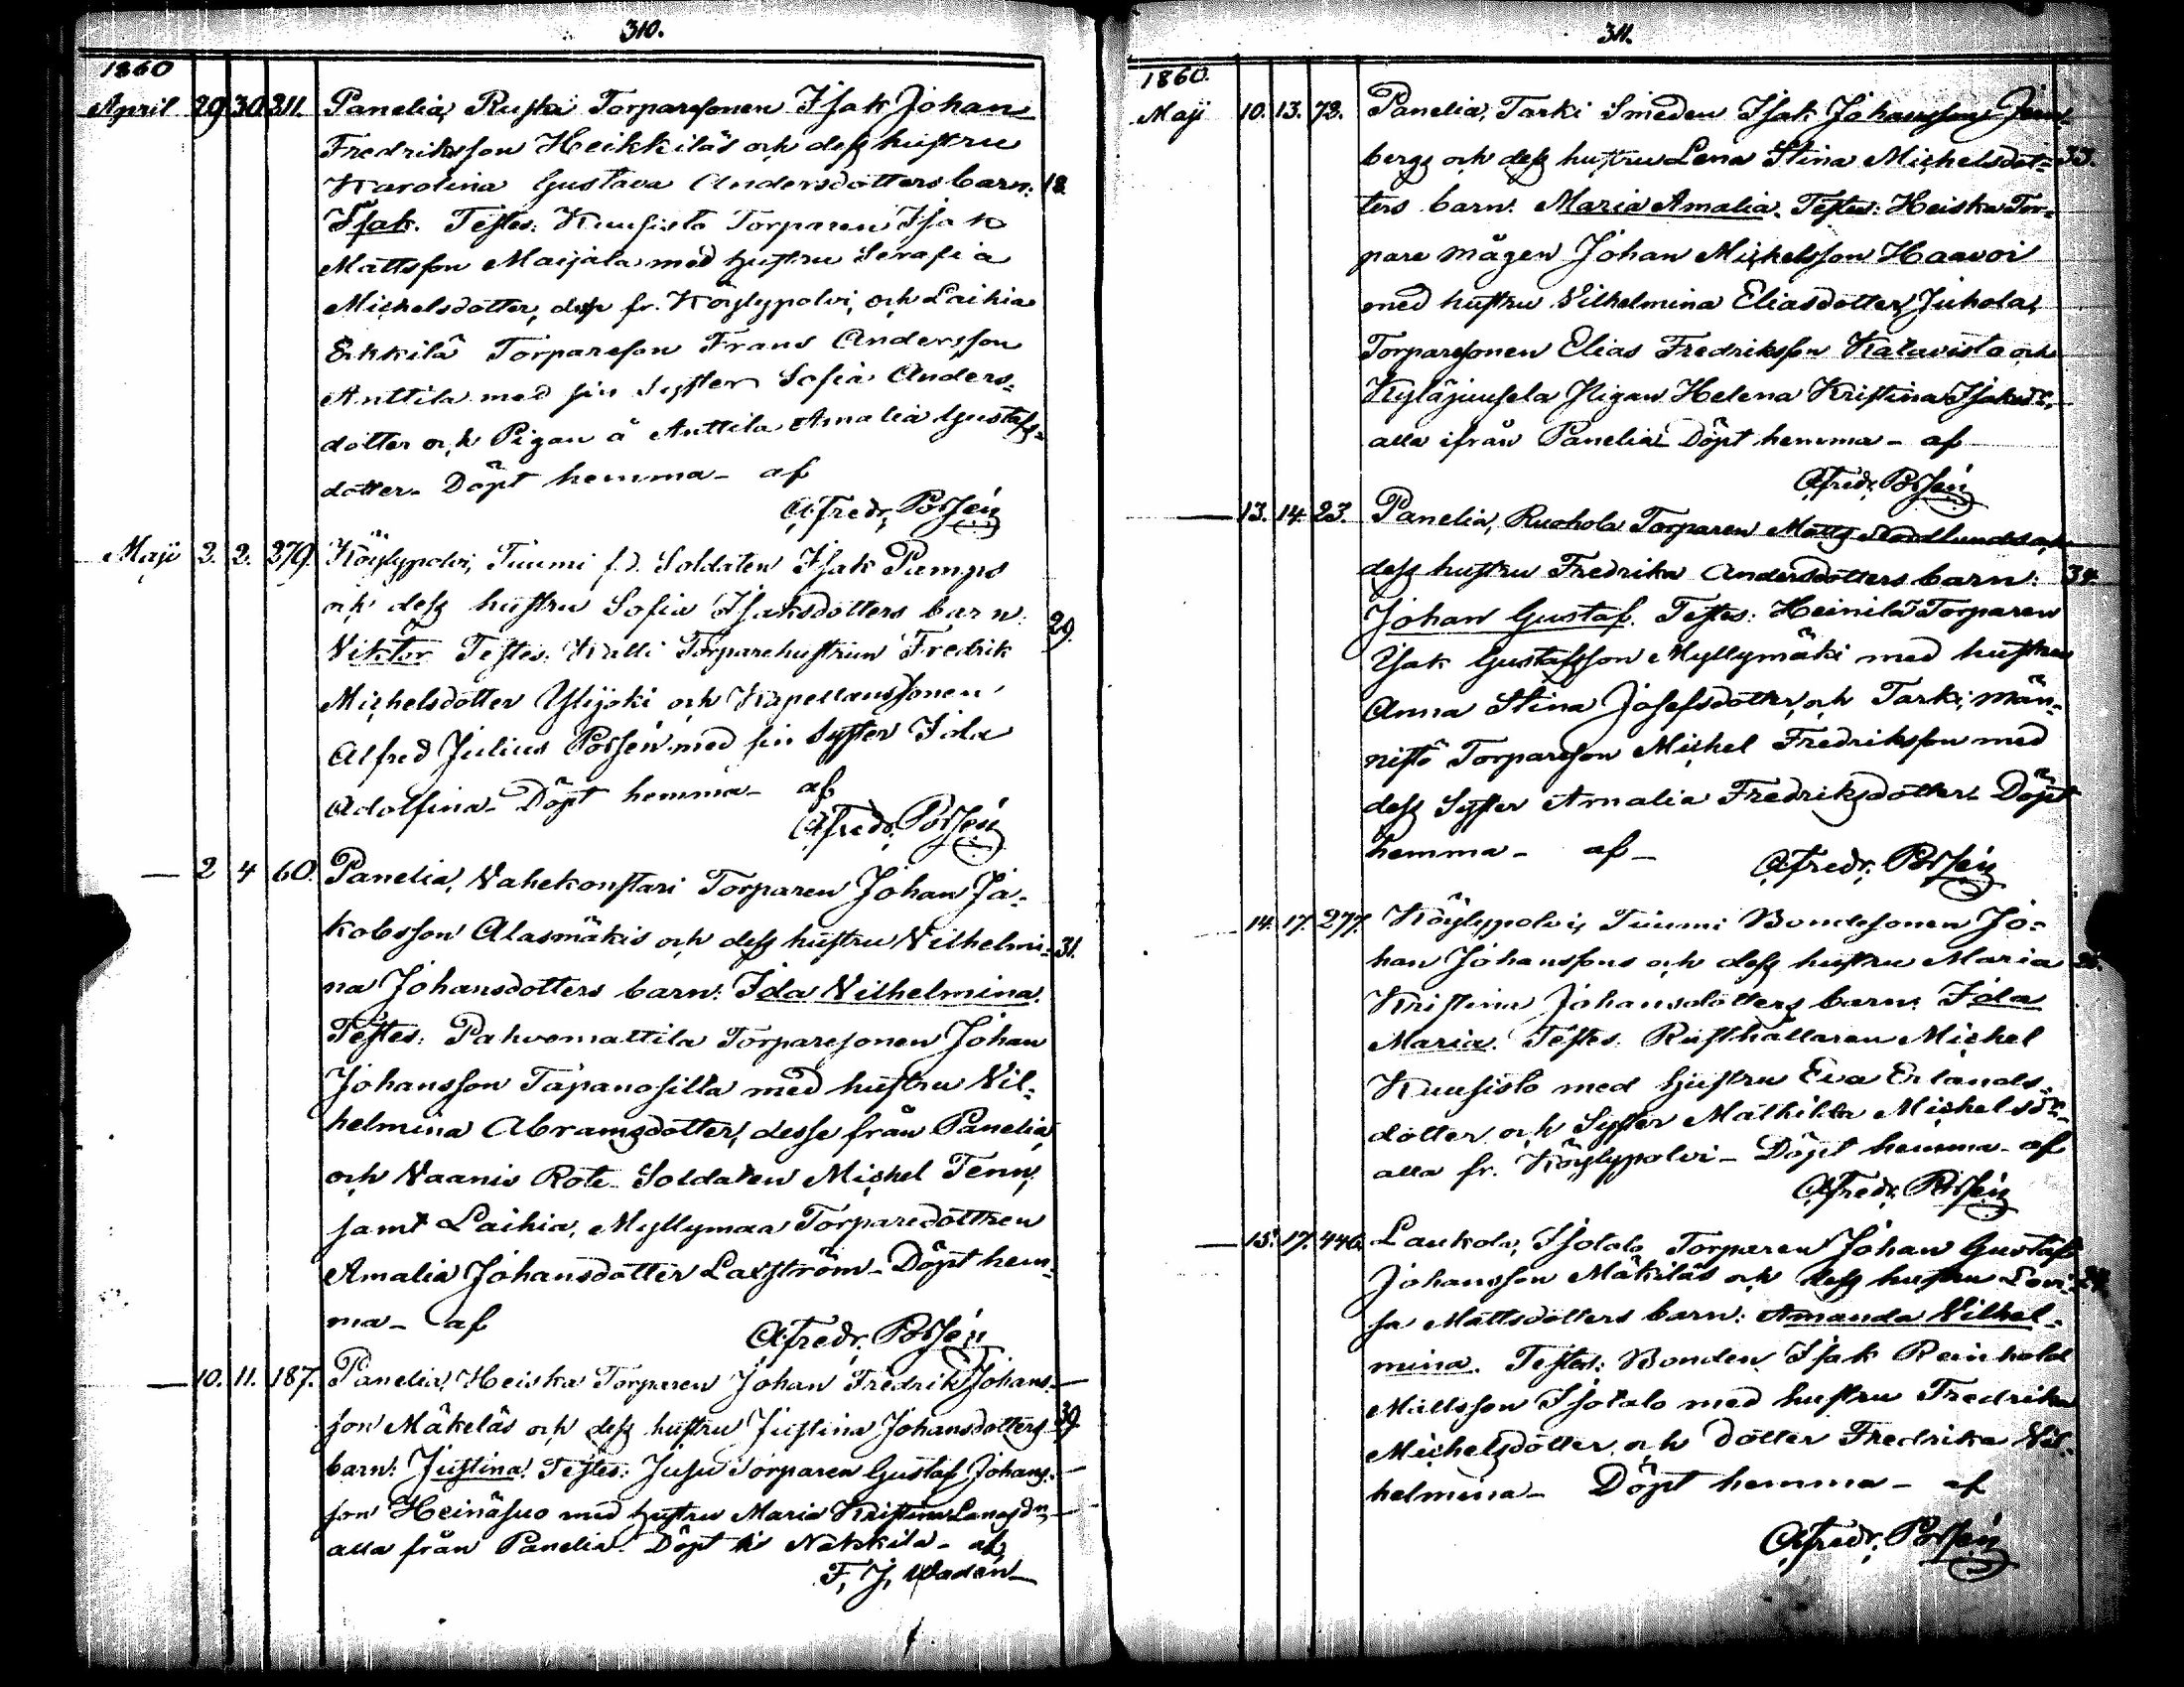 310.
1860
April 29 30 311. Panelia, Ruska Torparesonen Isak Johan
Fredriksson Heikkiläs och dess hustru
Karolina Gustava Andersdotters barn: 18.
Isak. Testes: Kuusisto Torparen Isak
Mattsson Maijala med hustru Serafia
Michelsdotter, desse fr. Köylypolvi, och Laihia
Erkkilä Torpareson Frans Andersson
Anttila med sin Syster Sofia Anders-
dotter och Pigan å Anttila Amalia Gustafs-
dotter. Döpt hemma - af
A. Fredr. Polsén
Maji 2. 2. 279. Köylypolvi, Tuumi f.d. Soldaten Isak Pumps
och dess hustru Sofia Isaksdotters barn: 29.
Viktor. Testes. Kalli Torparehustrun Fredrik
Michelsdotter Ylijoki och Kapellanssonen
Alfred Julius Polsén med sin Syster Ida
Adolfina - Döpt hemma - af
A. Fredr. Polsén
— 2 4 60. Panelia, Vahekonstari Torparen Johan Ja-
kobsson Alasmäkis och dess hustru Vilhelmi- 31.
na Johansdotters barn: Ida Vilhelmina.
Testes: Pahvomattila Torparesonen Johan
Johansson Tapanosilla med hustru Vil-
helmina Abramsdotter, desse från Panelia,
och Vaanis Rote Soldaten Michel Tenn,
samt Laihia, Myllymaa Torparedottren
Amalia Johansdotter Laxström - Döpt hem-
ma - af
A. Fredr. Polsén
— 10. 11. 187. Panelia, Heiska Torparen Johan Fredrik Johans-
son Mäkeläs och dess hustru Justina Johansdotters 39.
barn: Justina. Testes: Jusu Torparen Gustaf Johans-
son Heinäsuo med hustru Maria Kristina
alla från Panelia. Döpt i Nakkila - af
F. J. Wadén
311.
1860.
Maji 10. 13. 72. Panelia, Tarki Smeden Isak Johansson
bergs och dess hustru Lena Stina Michelsdot- 33.
ters barn: Maria Amalia. Testes: Heiska Tor-
pare mågen Johan Michelsson Haavoi
med hustru Vilhelmina Eliasdotter, Juhola,
Torparesonen Elias Fredriksson Katavisto och
Kyläjuusela Pigan Helena Kristina Isaksdr,
alla ifrån Panelia - Döpt hemma - af
A. Fredr. Polsén
— 13. 14. 23. Panelia, Ruohola Torparen Matts Nordlunds och
dess hustru Fredrika Andersdotters barn: 34.
Johan Gustaf. Testes: Heinilä Torparen
Isak Gustafsson Myllymäki med hustru
Anna Stina Josefsdotter, och Tarki, Män-
nistö Torpareson Michel Fredriksson med
dess Syster Amalia Fredriksdotter - Döpt
hemma - af -
A. Fredr. Polsén
— 14. 17. 277. Köylypolvi, Tuumi Bondesonen Jo-
han Johanssons och dess hustru Maria
Kristina Johansdotters barn: Ida
Maria. Testes: Rusthållaren Michel
Kuusisto med hustru Eva Erlands-
dotter och Syster Mathilda Michelsdr,
alla fr. Köylypolvi - Döpt hemma - af
A. Fredr. Polsén
— 15. 17. 446. Laukola, Isotalo Torparen Johan Gustaf
Johansson Mäkiläs och dess hustru Lovi-
sa Mattsdotters barn: Amanda Vilhel-
mina. Testes: Bonden Isak Reinhold
Mattsson Isotalo med hustru Fredrika
Michelsdotter och dotter Fredrika Vil-
helmina - Döpt hemma - af
A. Fredr. Polsén